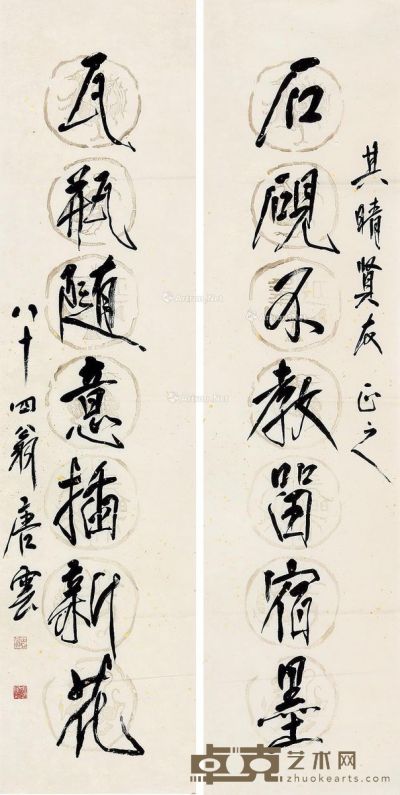 其晴贤友正之
石砚不教留宿墨
瓦瓶隨意插新花
八十四翁唐雲
Artron.Net
Artron.Net
卓克艺术网
zhuokearts.com